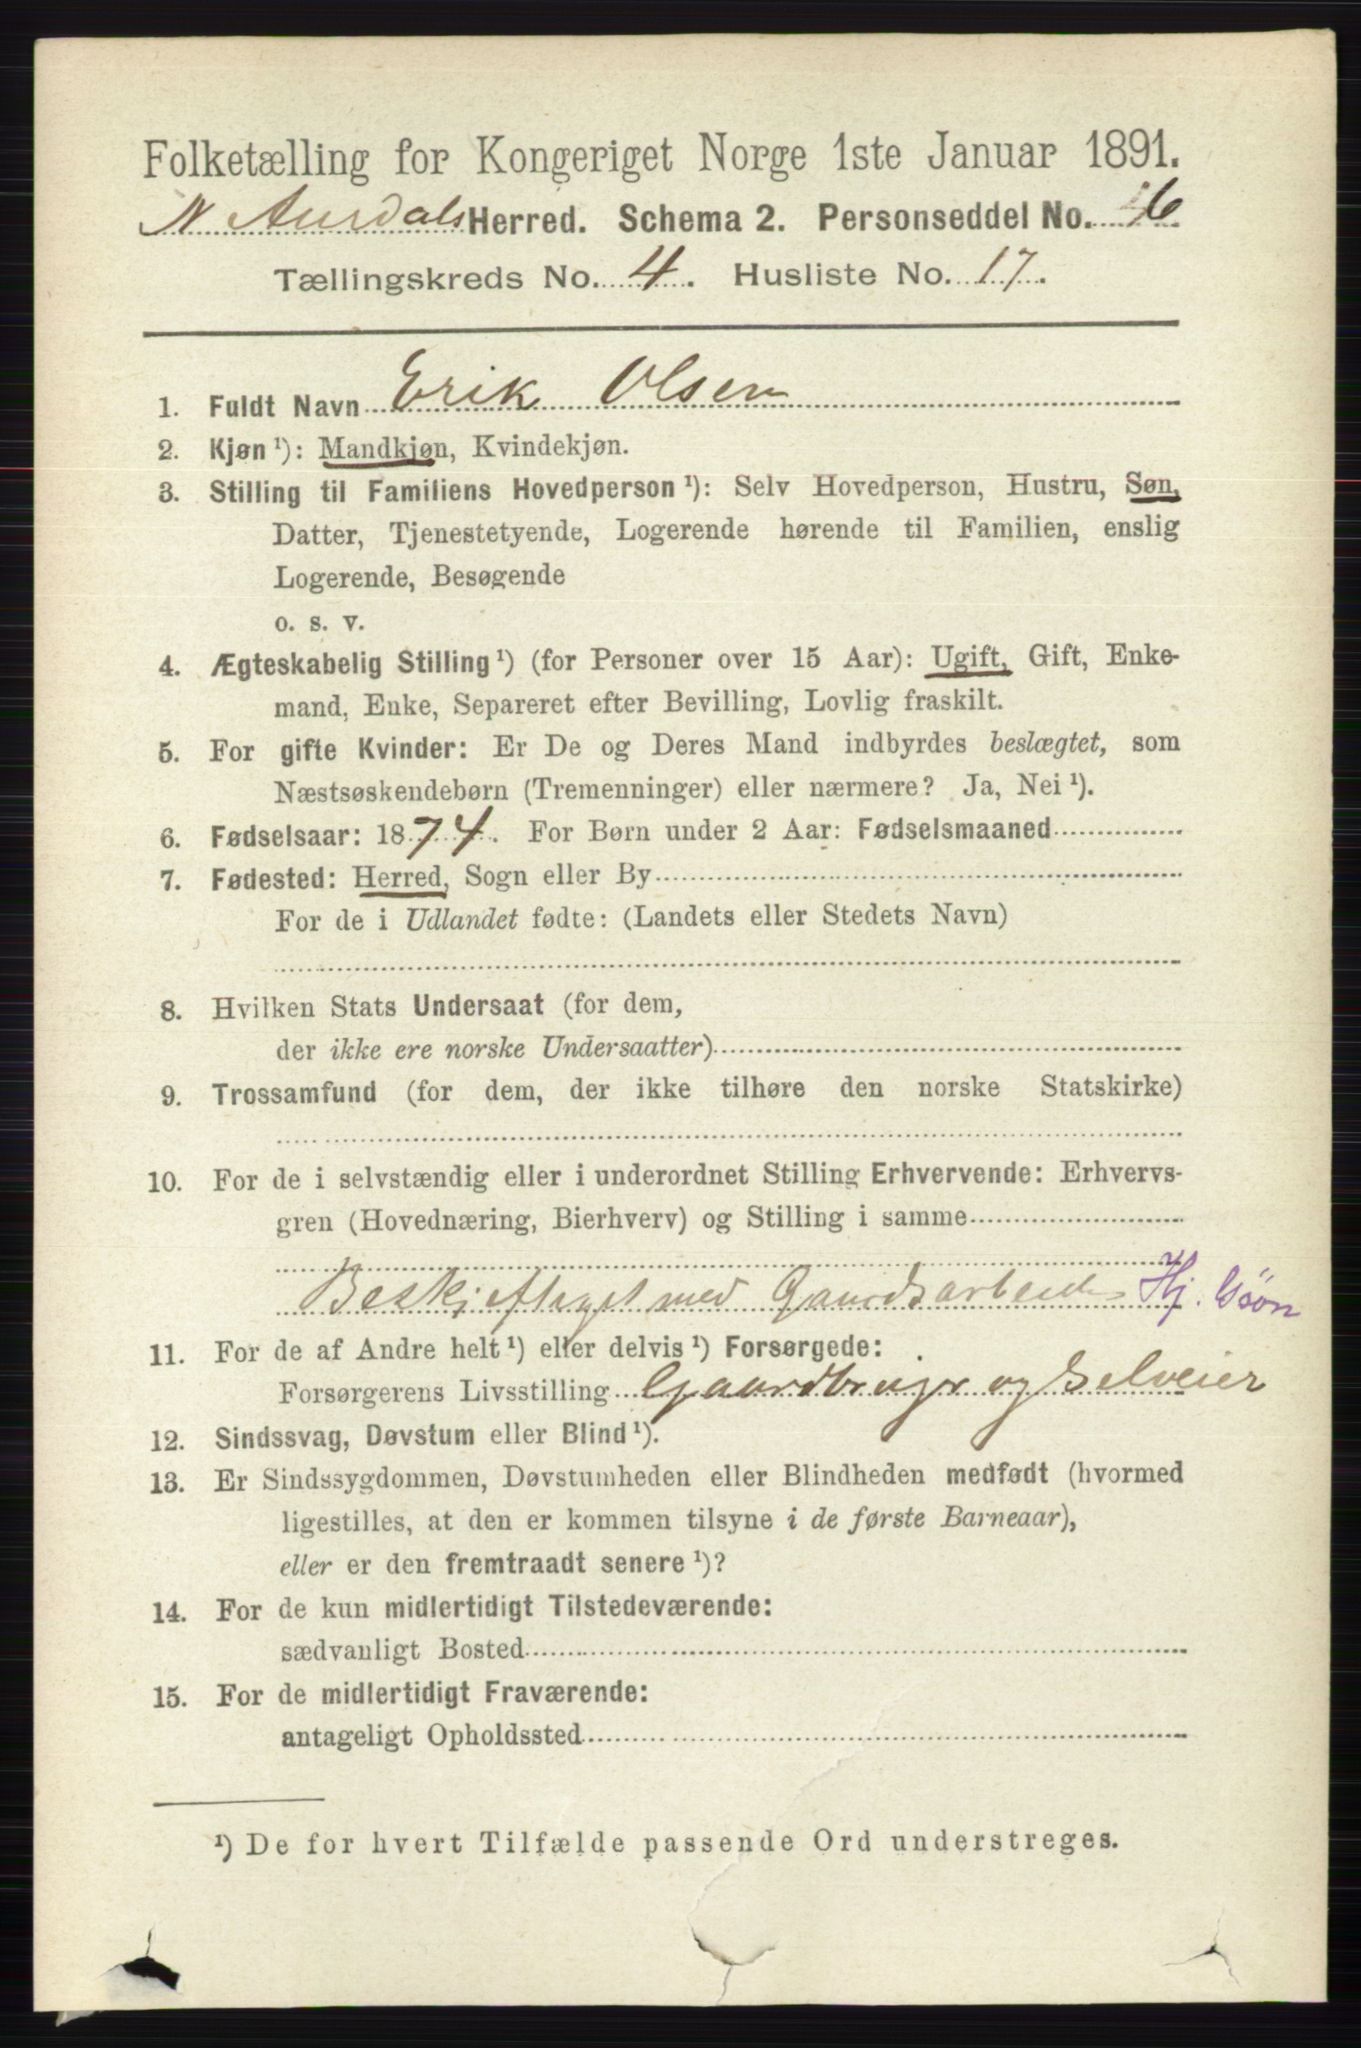 Folketælling for Kongeriget Norge 1ste Januar 1891.
N Aurdals Herred. Schema 2. Personseddel No. 6
Tællingskreds No. 4. Husliste No. 17.
1. Fuldt Navn Erik Olsen
2. Kjøn ¹): Mandkjøn, Kvindekjøn.
3. Stilling til Familiens Hovedperson ¹): Selv Hovedperson, Hustru, Søn,
Datter, Tjenestetyende, Logerende hørende til Familien, enslig
Logerende, Besøgende
o. s. v.
4. Ægteskabelig Stilling ¹) (for Personer over 15 Aar): Ugift, Gift, Enke-
mand, Enke, Separeret efter Bevilling, Lovlig fraskilt.
5. For gifte Kvinder: Er De og Deres Mand indbyrdes beslægtet, som
Næstsøskendebørn (Tremenninger) eller nærmere? Ja, Nei ¹).
6. Fødselsaar: 1874. For Børn under 2 Aar: Fødselsmaaned
7. Fødested: Herred, Sogn eller By
For de i Udlandet fødte: (Landets eller Stedets Navn)
8. Hvilken Stats Undersaat (for dem,
der ikke ere norske Undersaatter)
9. Trossamfund (for dem, der ikke tilhøre den norske Statskirke)
10. For de i selvstændig eller i underordnet Stilling Erhvervende: Erhvervs-
gren (Hovednæring, Bierhverv) og Stilling i samme
Beskjeftiget med Gaardsarbeide Hj. Søn
11. For de af Andre helt ¹) eller delvis ¹) Forsørgede:
Forsørgerens Livsstilling Gaardbruger og Selveier
12. Sindssvag, Døvstum eller Blind ¹).
13. Er Sindssygdommen, Døvstumheden eller Blindheden medfødt (hvormed
ligestilles, at den er kommen tilsyne i de første Barneaar),
eller er den fremtraadt senere ¹)?
14. For de kun midlertidigt Tilstedeværende:
sædvanligt Bosted
15. For de midlertidigt Fraværende:
antageligt Opholdssted
¹) De for hvert Tilfælde passende Ord understreges.